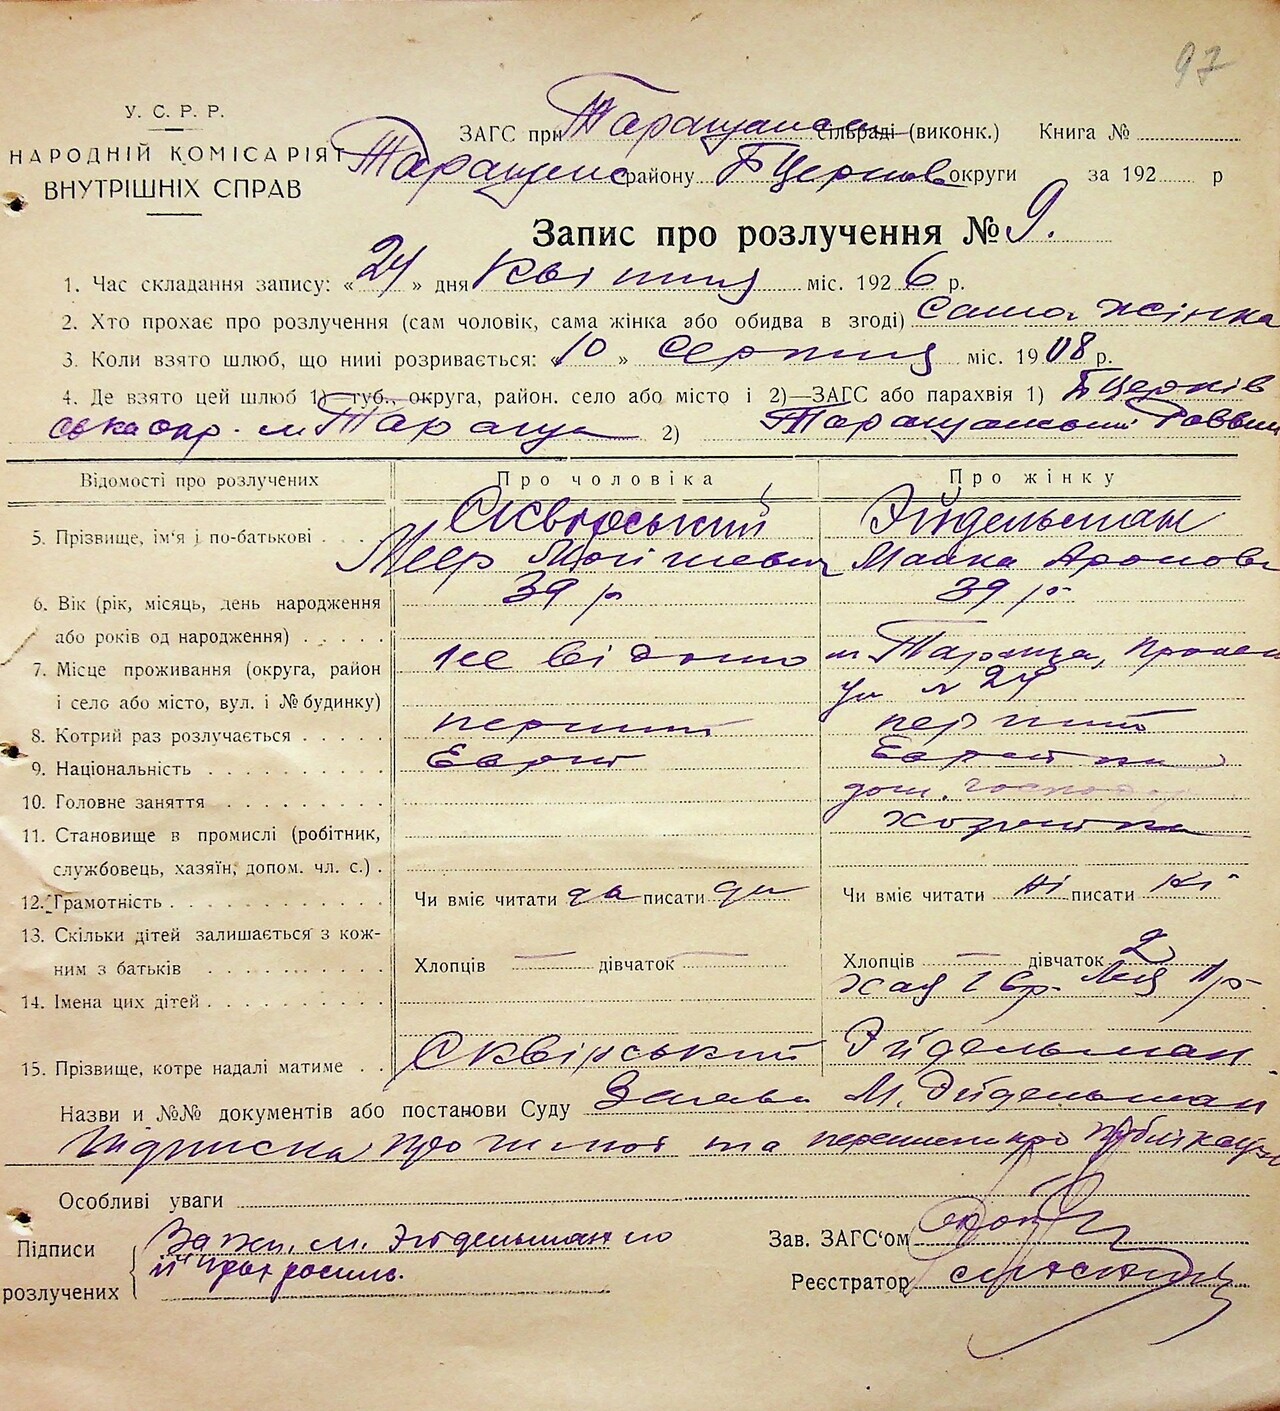 97
У. С. Р. Р.
НАРОДНІЙ КОМІСАРІЯТ
ВНУТРІШНІХ СПРАВ
ЗАГС при Таращанск сільраді (виконк.) Книга №
Таращанс району БЦерков округи за 192 р
Запис про розлучення № 9.
1. Час складання запису: « 24 » дня квітня міс. 1926 р.
2. Хто прохає про розлучення (сам чоловік, сама жінка або обидва в згоді) сама жінка
3. Коли взято шлюб, що нині розривається: « 10 » серпня міс. 1908 р.
4. Де взято цей шлюб 1) губ., округа, район. село або місто і 2)—ЗАГС або парахвія 1) БЦерків
ська окр. м Тараща 2) Таращанський Раввин
Відомості про розлучених
Про чоловіка
Про жінку
5. Прізвище, ім'я і по-батькові
Сквірський Эйдельман
Меер Мойшевич Малка Аронова
6. Вік (рік, місяць, день народження 39 р 39 р
або років од народження)
7. Місце проживання (округа, район не відомо м Тараща,
і село або місто, вул. і № будинку) ул № 24
8. Котрий раз розлучається перший перший
9. Національність Еврей Еврейка
10. Головне заняття дом. господар
11. Становище в промислі (робітник, хозяйка
службовець, хазяїн, допом. чл. с.)
12. Грамотність Чи вміє читати да писати да Чи вміє читати ні писати ні
13. Скільки дітей залишається з кож-
ним з батьків Хлопців — дівчаток — Хлопців — дівчаток 2
14. Імена цих дітей Хая 16р. Лея 11р
15. Прізвище, котре надалі матиме Сквірський Эйдельман
Назви и №№ документів або постанови Суду Заява М. Эйдельман
Підписка про шлюб та про публікацію
Особливі уваги
Підписи
розлучених
За жи. М. Эйдельман по
її
Зав. ЗАГС'ом
Реєстратор